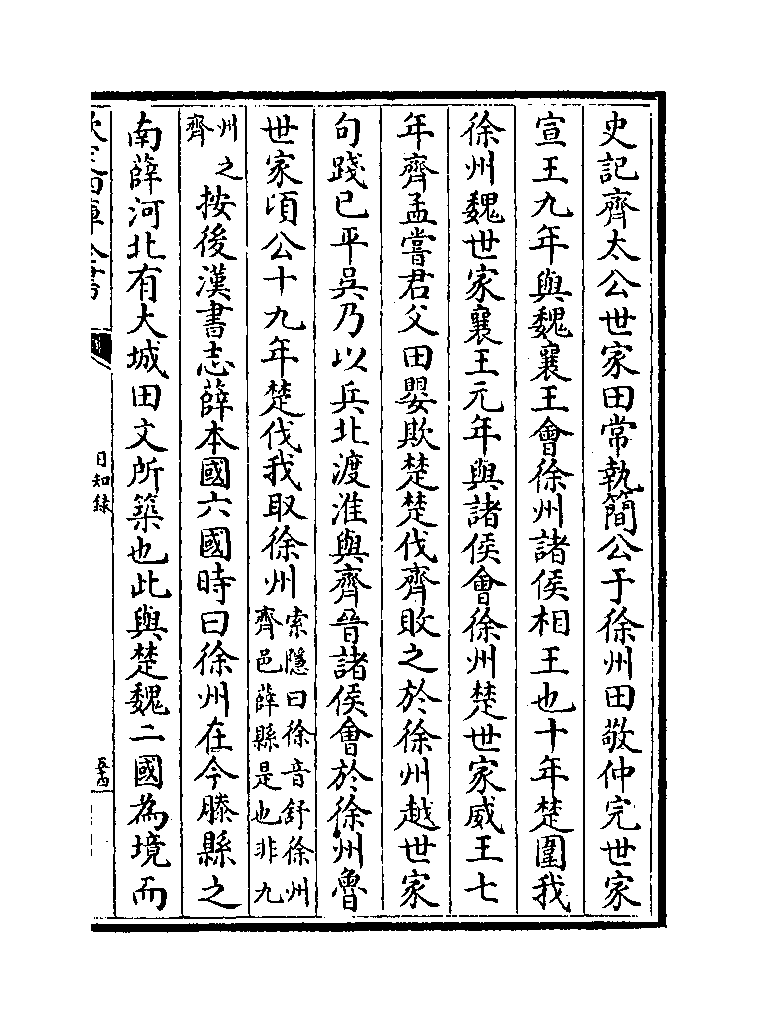 史記齊太公世家田常執簡公于徐州田敬仲完世家
宣王九年與魏襄王會徐州諸侯相王也十年楚圍我
徐州魏世家襄王元年與諸侯會徐州楚世家威王七
年齊孟嘗君父田嬰欺楚楚伐齊敗之於徐州越世家
句踐已平吳乃以兵北渡淮與齊晉諸侯會於徐州魯
世家頃公十九年楚伐我取徐州索隱曰徐音舒徐州齊邑薛縣是也非九
州之齊按後漢書志薛本國六國時曰徐州在今滕縣之
南薛河北有大城田文所築也此與楚魏二國為境而
日知錄